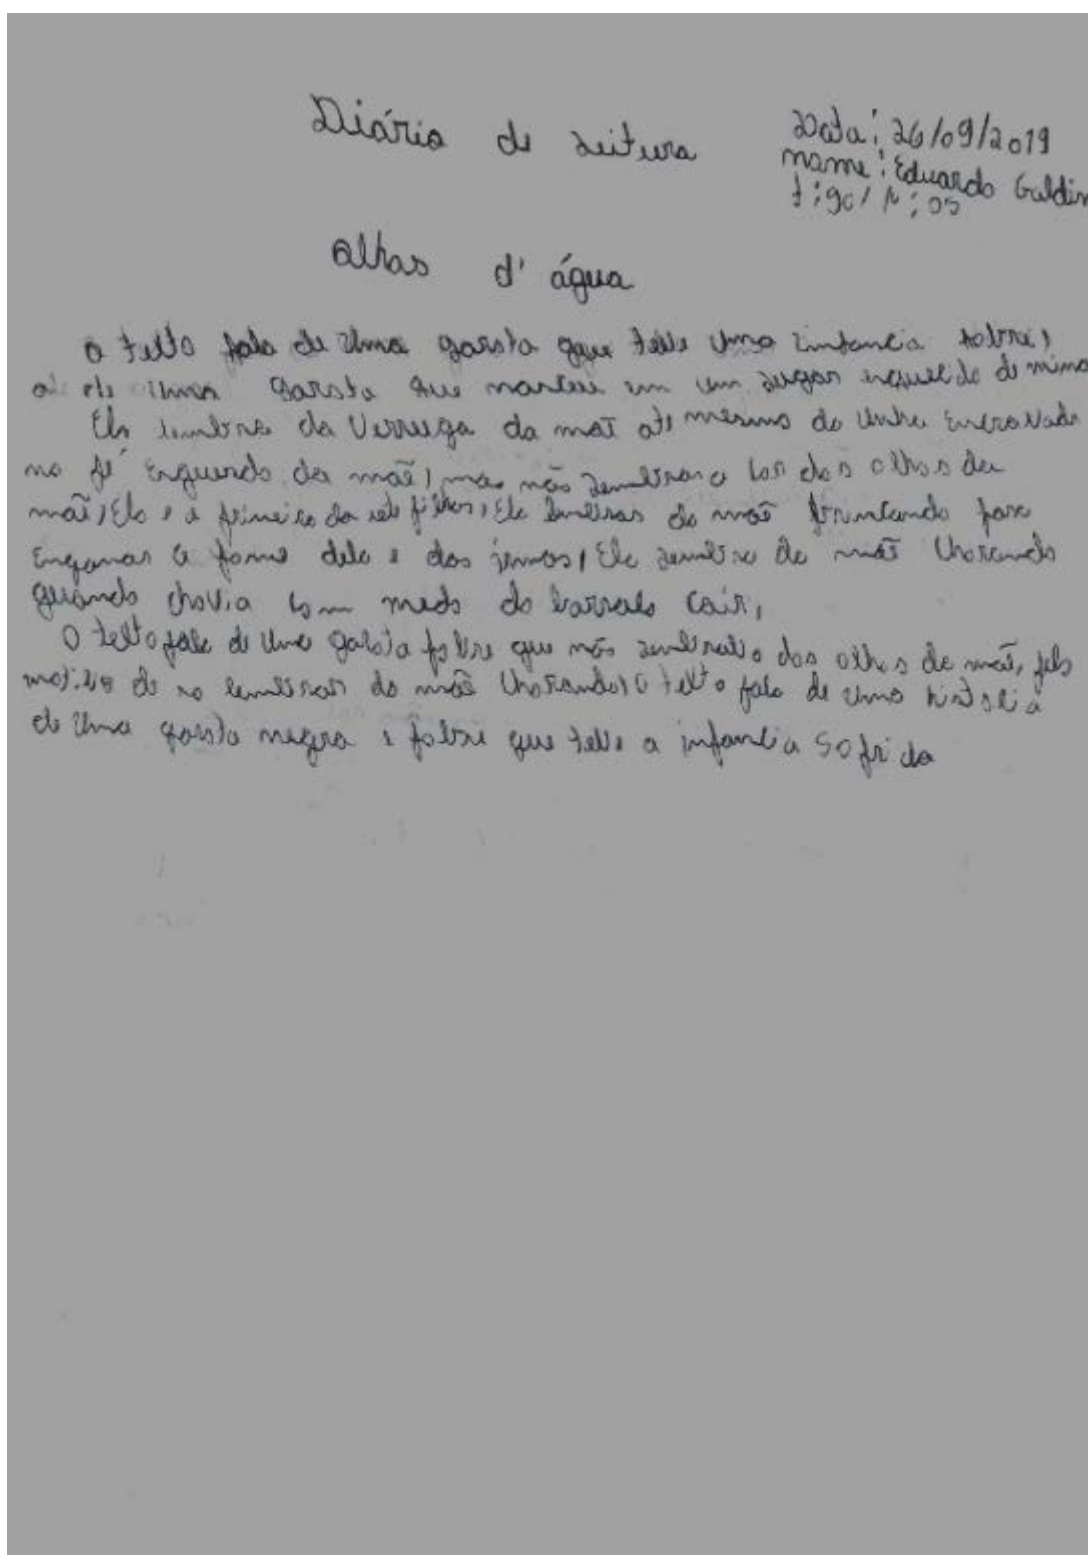 Diário de Leitura
Data: 26/09/2019
nome: Eduardo Galdin
t: 901 n: 05
Olhos d' água
O texto fala de uma garota que teve uma infancia pobre,
de uma garota que nasceu em um lugar esquecido de minas
Ela lembra da verruga da mãe até mesmo da unha encravada
no pé esquerdo da mãe, mas não lembrava a cor dos olhos da
mãe, Ela e a primeira da sete filhos, Ela lembras da mãe brincando para
enganar a fome dela e dos irmos, Ela lembra da mãe chorando
quando chovia com medo do barraco cair,
O texto fala de uma garota pobre que não lembrava dos olhos da mãe, pelo
motivo de so lembrar da mãe chorando, O texto fala de uma
de uma garota negra e pobre que teve a infancia sofrida